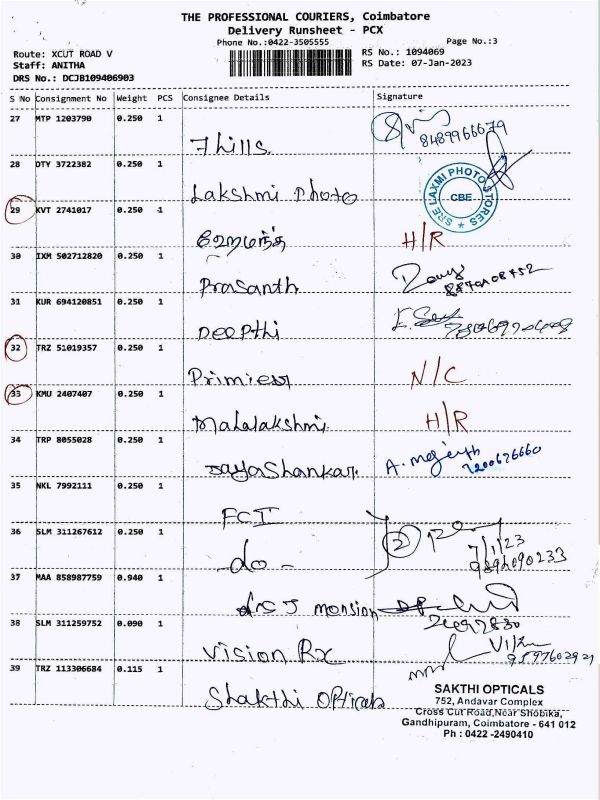 THE PROFESSIONAL COURIERS, Coimbatore
Delivery Runsheet - PCX
Phone No.:0422-3505555
Page No.:3
Route: XCUT ROAD V
RS No.: 1094069
Staff: ANITHA
RS Date: 07-Jan-2023
DRS No.: DCJB109406903
S No Consignment No Weight PCS Consignee Details Signature
27 MTP 1203790 0.250 1
7 hills
8489966679
28 DTY 3722382 0.250 1
Lakshmi Photo
SRE LAXMI PHOTO STORES
CBE
29 KVT 2741017 0.250 1
ஹேமந்த் H/R
30 IXM 502712820 0.250 1
Prasanth
31 KUR 694120851 0.250 1
Deepthi
32 TRZ 51019357 0.250 1
Primiess N/C
33 KMU 2407407 0.250 1
Mahalakshmi H/R
34 TRP 8055028 0.250 1
Jayashankar.
7200676660
35 NKL 7992111 0.250 1
FCI
36 SLM 311267612 0.250 1
-do- 2
7/1/23
9892090233
37 MAA 858987759 0.940 1
mansion
38 SLM 311259752 0.090 1
Vision Rx
39 TRZ 113306684 0.115 1
Shakthi Opticals
SAKTHI OPTICALS
752, Andavar Complex
Cross Cut Road,Near Shobika,
Gandhipuram, Coimbatore - 641 012
Ph : 0422 -2490410